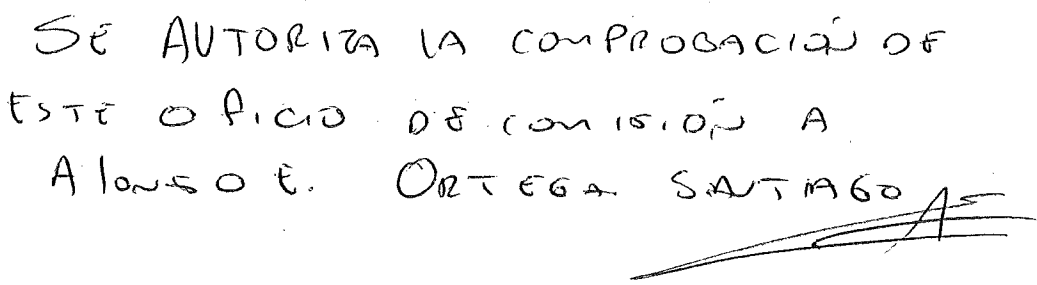 SE AUTORIZA LA COMPROBACIÓN DE
ESTE OFICIO DE COMISIÓN A
ALONSO E. ORTEGA SANTIAGO